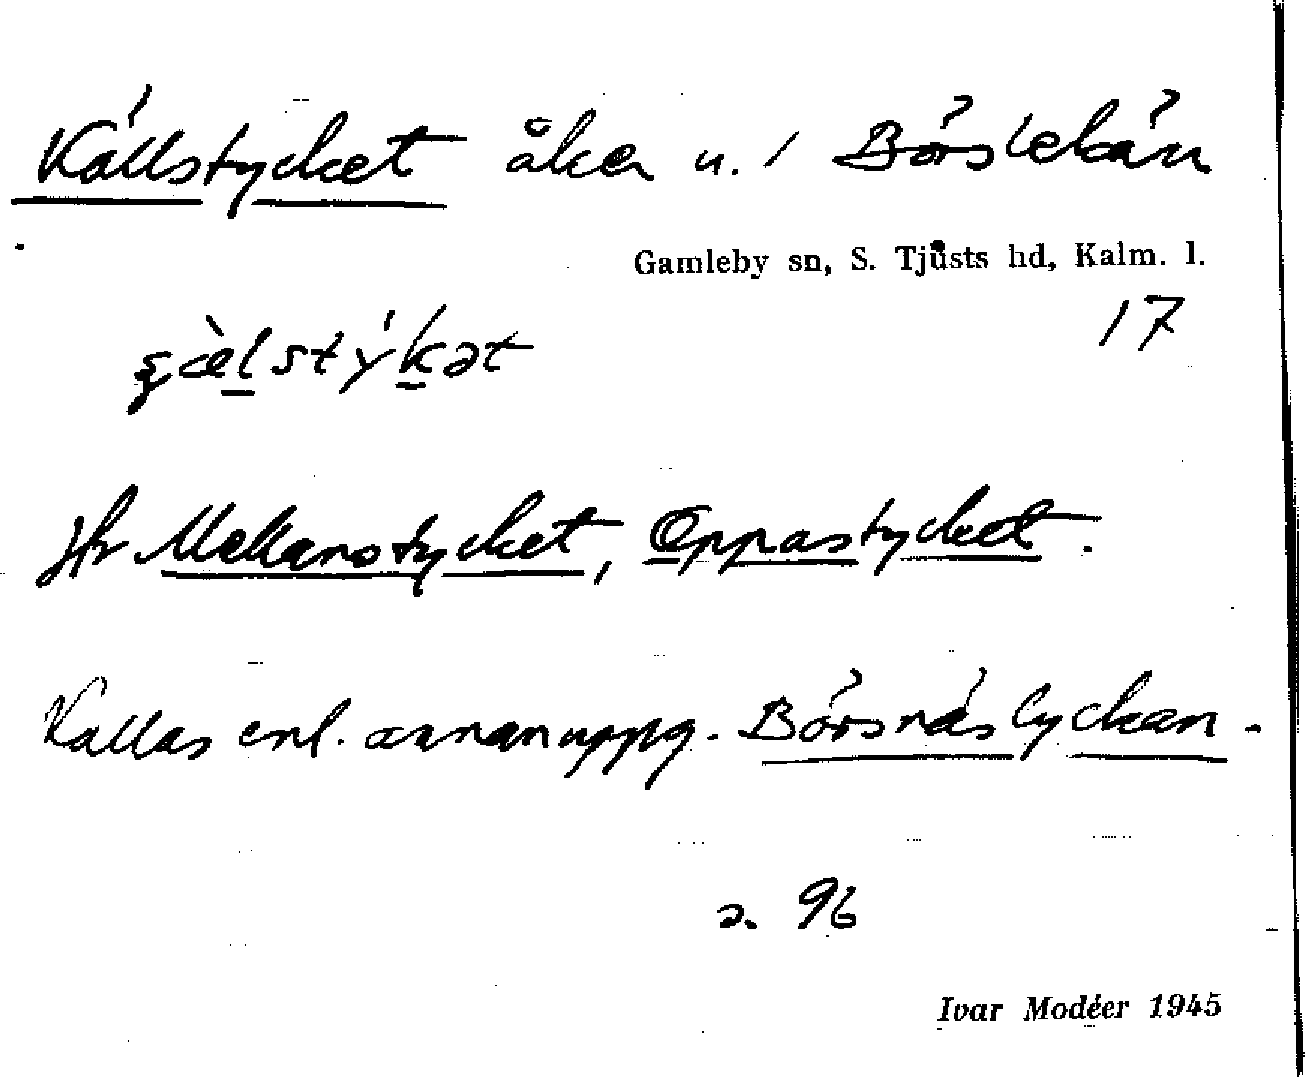 Källstycket åker u. 1 Börslekärr
Gamleby sn, S. Tjusts hd, Kalm. l.
17
Jfr Mellanstycket, Oppastycket.
Kallas enl. annan uppg. Börsnäslyckan.
a. 96
Ivar Modéer 1945